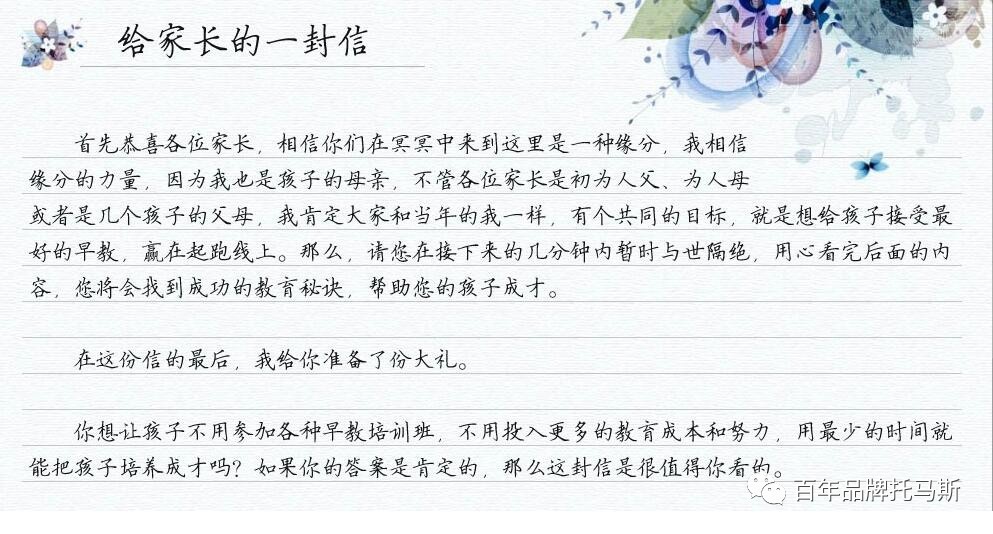 给家长的一封信
首先恭喜各位家长，相信你们在冥冥中来到这里是一种缘分，我相信
缘分的力量，因为我也是孩子的母亲，不管各位家长是初为人父、为人母
或者是几个孩子的父母，我肯定大家和当年的我一样，有个共同的目标，就是想给孩子接受最
好的早教，赢在起跑线上。那么，请您在接下来的几分钟内暂时与世隔绝，用心看完后面的内
容，您将会找到成功的教育秘诀，帮助您的孩子成才。
在这份信的最后，我给你准备了份大礼。
你想让孩子不用参加各种早教培训班，不用投入更多的教育成本和努力，用最少的时间就
能把孩子培养成才吗？如果你的答案是肯定的，那么这封信是很值得你看的。
百年品牌托马斯